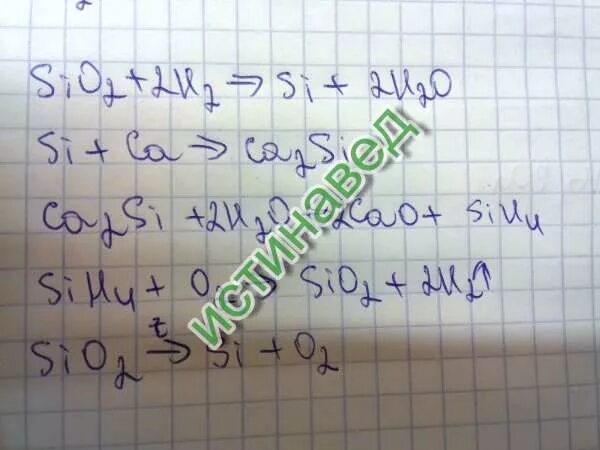 SiO2 + 2H2 => Si + 2H2O
Si + Ca => Ca2Si
Ca2Si + 2H2O → 2CaO + SiH4
SiH4 + O2 => SiO2 + 2H2↑
SiO2 t→ Si + O2
истинавед